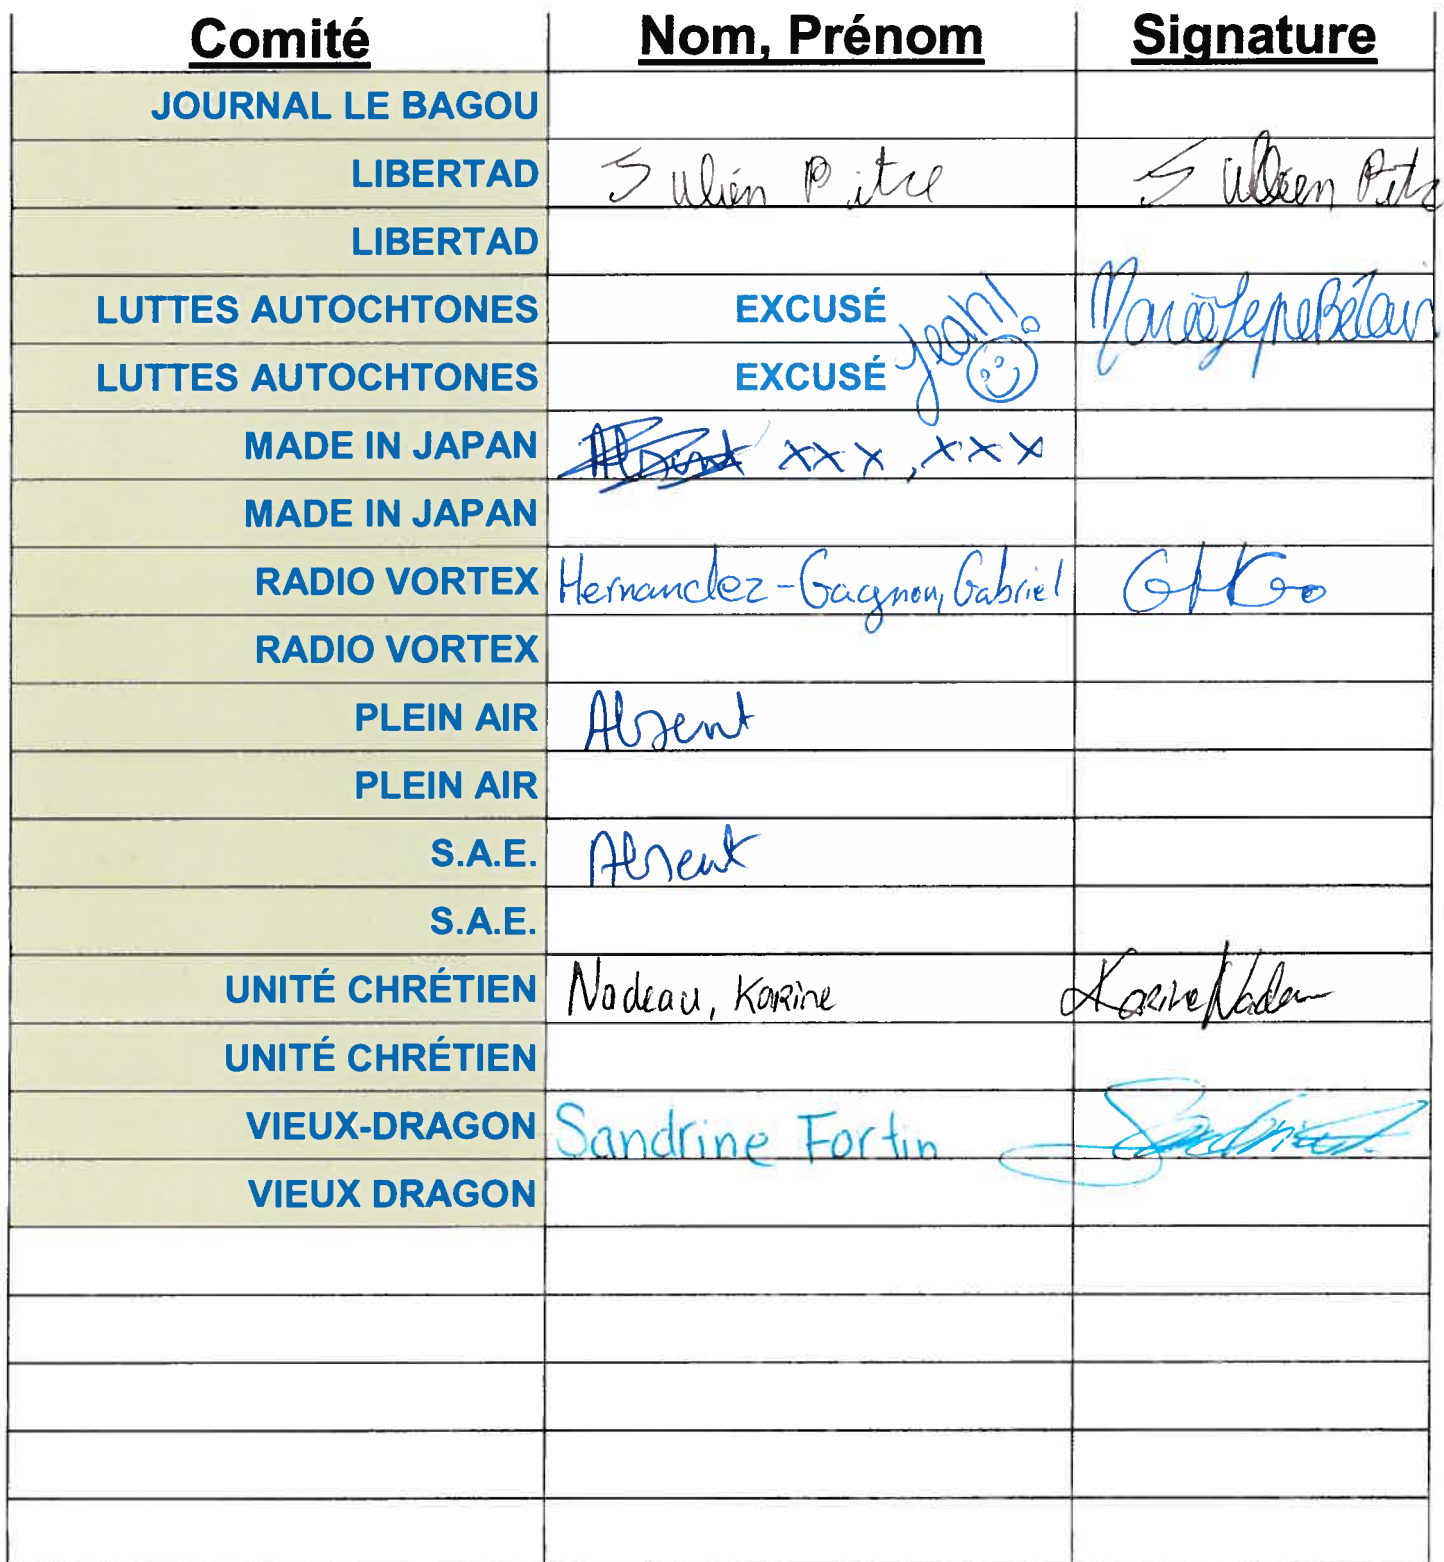 Comité Nom, Prénom Signature
JOURNAL LE BAGOU
LIBERTAD Julien Pitre Julien Pitre
LIBERTAD
LUTTES AUTOCHTONES EXCUSÉ yeah!
LUTTES AUTOCHTONES EXCUSÉ
MADE IN JAPAN Absent xxx, xxx
MADE IN JAPAN
RADIO VORTEX Hernandez-Gagnon, Gabriel GHG
RADIO VORTEX
PLEIN AIR Absent
PLEIN AIR
S.A.E. Absent
S.A.E.
UNITÉ CHRÉTIEN Nadeau, Karine Karine Nadeau
UNITÉ CHRÉTIEN
VIEUX-DRAGON Sandrine Fortin
VIEUX DRAGON